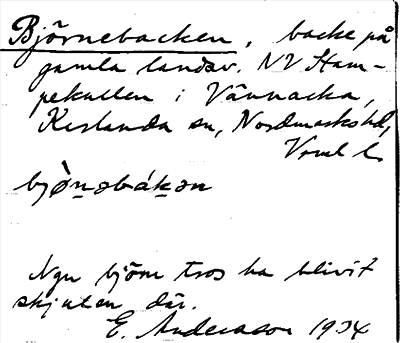 Björnebacken, backe på
gamla landsv. NV Ham-
pekullen i Vännacka,
Karlanda sn, Nordmarks hd,
Vrml l.
bjö̀ṇəbákən
Ngn björn tros ha blivit
skjuten där.
E. Andersson 1934